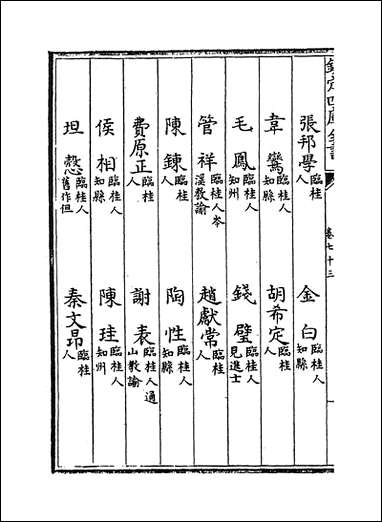 欽定四庫全書
卷七十三
張邦學 臨桂人 金白 臨桂人知縣
韋鸞 臨桂人知縣 胡希定 臨桂人
毛鳳 臨桂人知州 錢璧 臨桂人見進士
管祥 臨桂人岑溪教諭 趙獻常 臨桂人
陳鍊 臨桂人 陶性 臨桂人知縣
費原正 臨桂人 謝表 臨桂人通山教諭
侯相 臨桂人知縣 陳珪 臨桂人知州
坦慤 臨桂人舊作但 秦文昂 臨桂人